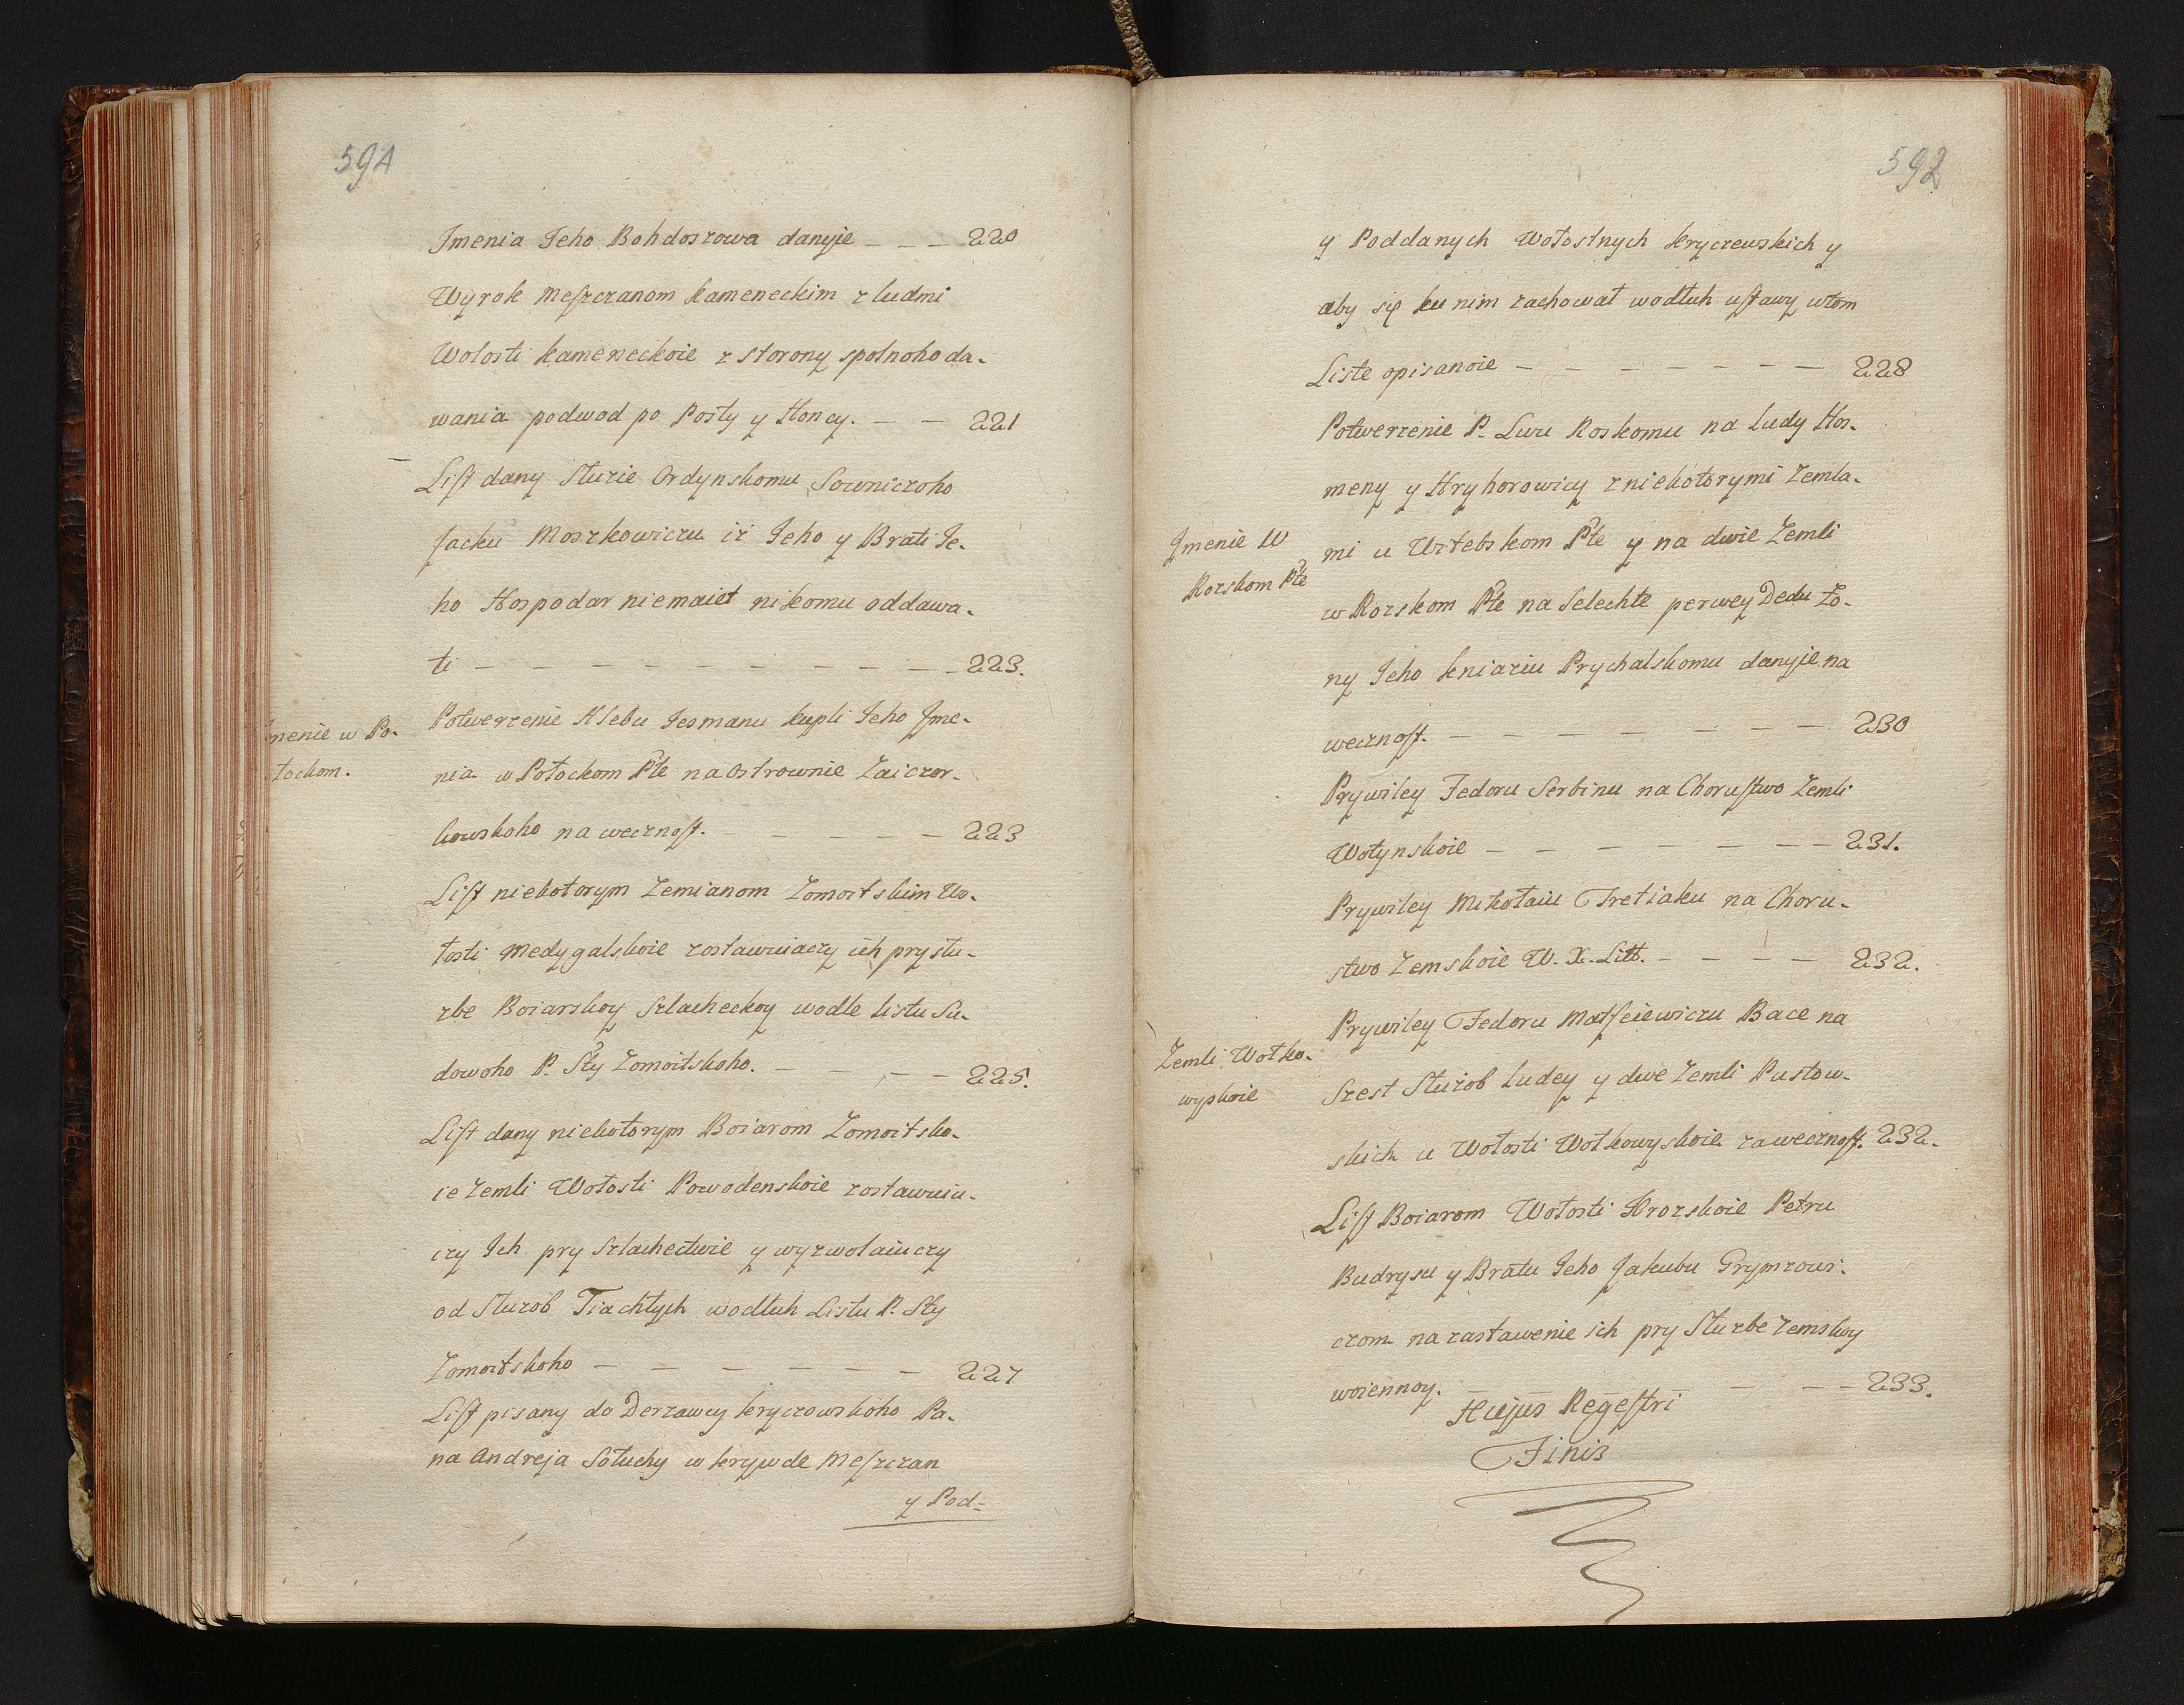 591
Jmenia Jeho Bohdoszowa danyje – – – 220
Wyrok Meszczanom kameneckim z ludmi
Wołosti kameneckoie z storony społnoho da-
wania podwod po Posty y Honcy. – – 221
List dany Słuzie Ordynskomu Sowniczoho
Jacku Moszkowiczu iż Jeho y Brati Je-
ho Hospodar niemaiet nikomu oddawa-
ti – – – – – – – – – – 223.
Jmenie w Po-
łockom.
Potwerzenie Hlebu Jesmanu kupli Jeho Jme-
nia w Połockom Pte na Ostrownie Zaiczor-
kowskoho na wecznost. – – – – – 223
List niekotorym Zemianom Zomoitskim Wo-
łosti Medygalskoie zostawuiaczy ich pry słu-
zbe Boiarskoy Szlacheckoy wodle listu Su-
dowoho P. Sty Zomoitskoho. – – – – 225.
List dany niekotorym Boiarom Zomoitsko-
ie Zemli Wołosti Powodenskoie zostawuiu-
czy Ich pry Szlachectwie y wyzwolaiuczy
od Słuzob Tiachłych wodłuh Listu P. Sty
Zomoitskoho – – – – – – – 227
List pisany do Derzawcy kryczowskoho Pa-
na Andreja Sołuchy w krywde Meszczan
y Pod=
592
y Poddanych Wołostnych kryczewskich y
aby się ku nim zachował wodłuh ustawy wtom
Liste opisanoie – – – – – – 228
Potwerzenie P. Lwu Roskomu na ludy Hos-
meny y Hryhorowicy z niekotorymi Zemla-
Jmenie W
Rozskom Pte
mi u Witebskom Pte y na dwie Zemli
w Rozskom Pte na Selechte perwey Dedu Zo-
ny Jeho kniaziu Prychalskomu danyje na
wecznost. – – – – – – – 230
Prywiley Fedoru Serbinu na Chorustwo Zemli
Wołynskoie – – – – – – – 231.
Prywiley Mikołaiu Tretiaku na Choru-
stwo Zemskoie W. X. Litt. – – – – 232.
Prywiley Fedoru Matfeiewiczu Bace na
Zemli Wołko-
wyskoie
Szest Słuzob ludey y dwe Zemli Pustow-
skich u Wołosti Wołkowyskoie zawecznost. 232.
List Boiarom Wołosti Hrozskoie Petru
Budrysu y Bratu Jeho Jakubu Grymzowi-
czom na zastawenie ich pry Słuzbe Zemskoy
woiennoy. – – – – – – 233.
Hujus Regestri
Finis